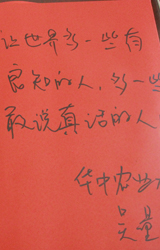 让世界多一些有
良知的人，多一些
敢说真话的人
华中农业
吴量